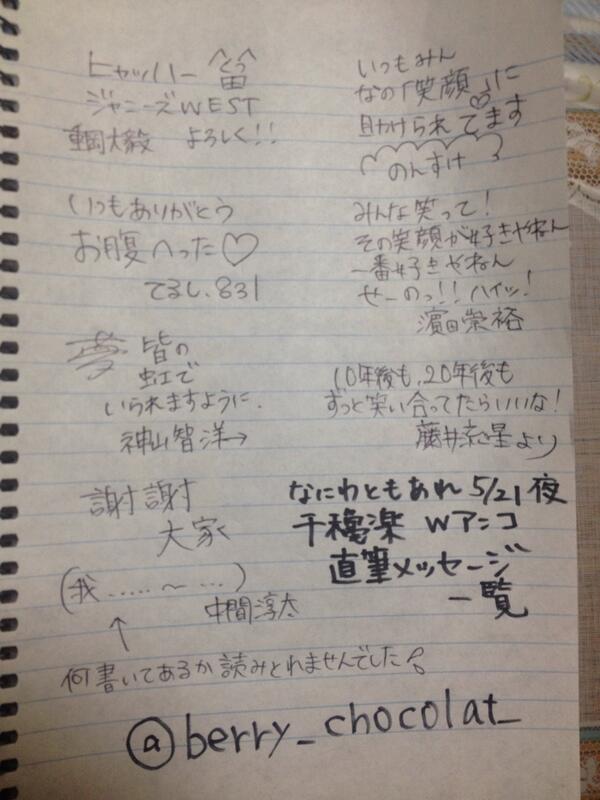 ヒャッハー 笛
ジャニーズWEST
重岡大毅 よろしく!!
いつもみん
なの「笑顔」に
助けられてます
のんすけ
いつもありがとう
お腹へった♡
てるし.831
みんな笑って!
その笑顔が好きやねん
一番好きやねん
せーのっ!!ハイッ!
濵田崇裕
夢 皆の
虹で
いられますように.
神山智洋→
10年後も、20年後も
ずっと笑い合ってたらいいな!
藤井流星より
謝謝
大家
(我.....~...)
中間淳太
↑
何書いてあるか読みとれませんでした
なにわともあれ 5/21 夜
千穐楽 Wアンコ
直筆メッセージ
一覧
@berry_chocolat_